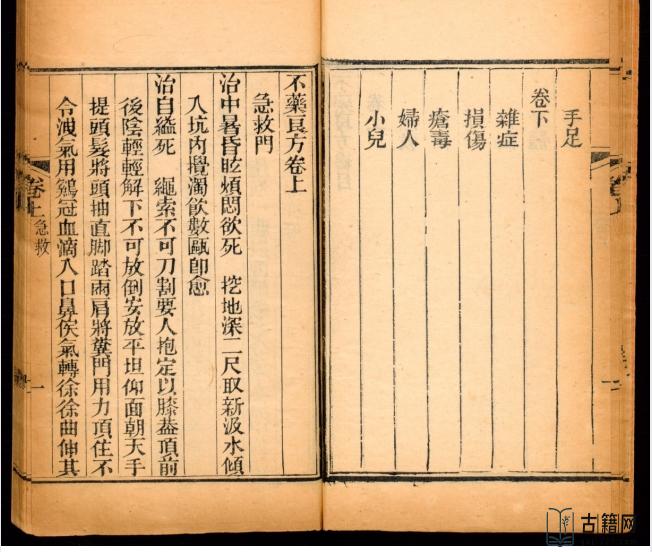 手足
卷下
雜症
損傷
瘡毒
婦人
小兒
不藥良方卷上
急救門
治中暑昏眩煩悶欲死 挖地深二尺取新汲水傾
入坑內攪濁飲數甌卽愈
治自縊死 繩索不可刀割要人抱定以膝葢頂前
後陰輕輕解下不可放倒安放平坦仰面朝天手
提頭髮將頭抽直脚踏兩肩將糞門用力頂住不
令洩氣用鷄冠血滴入口鼻俟氣轉徐徐曲伸其
卷上 急救
一
古籍网